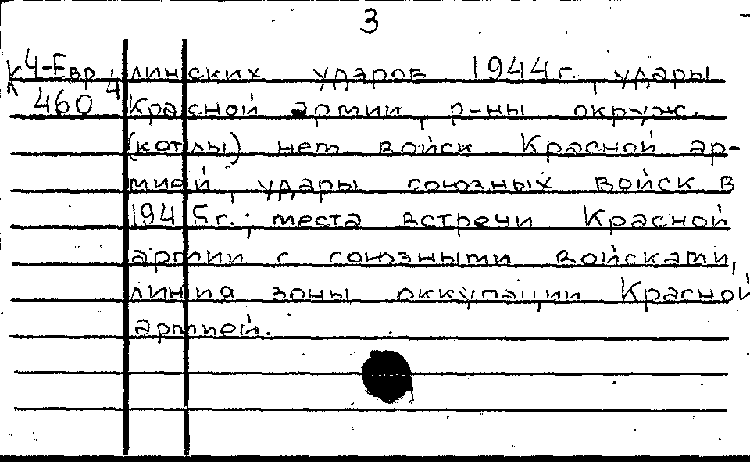 3
К4-Евр. линских ударов 1944 г., удары
460 4 Красной армии, р-ны окруж.
(котлы) нем. войск Красной ар-
мией, удары союзных войск в
1945 г.; места встречи Красной
армии с союзными войсками,
линия зоны оккупации Красной
армией.